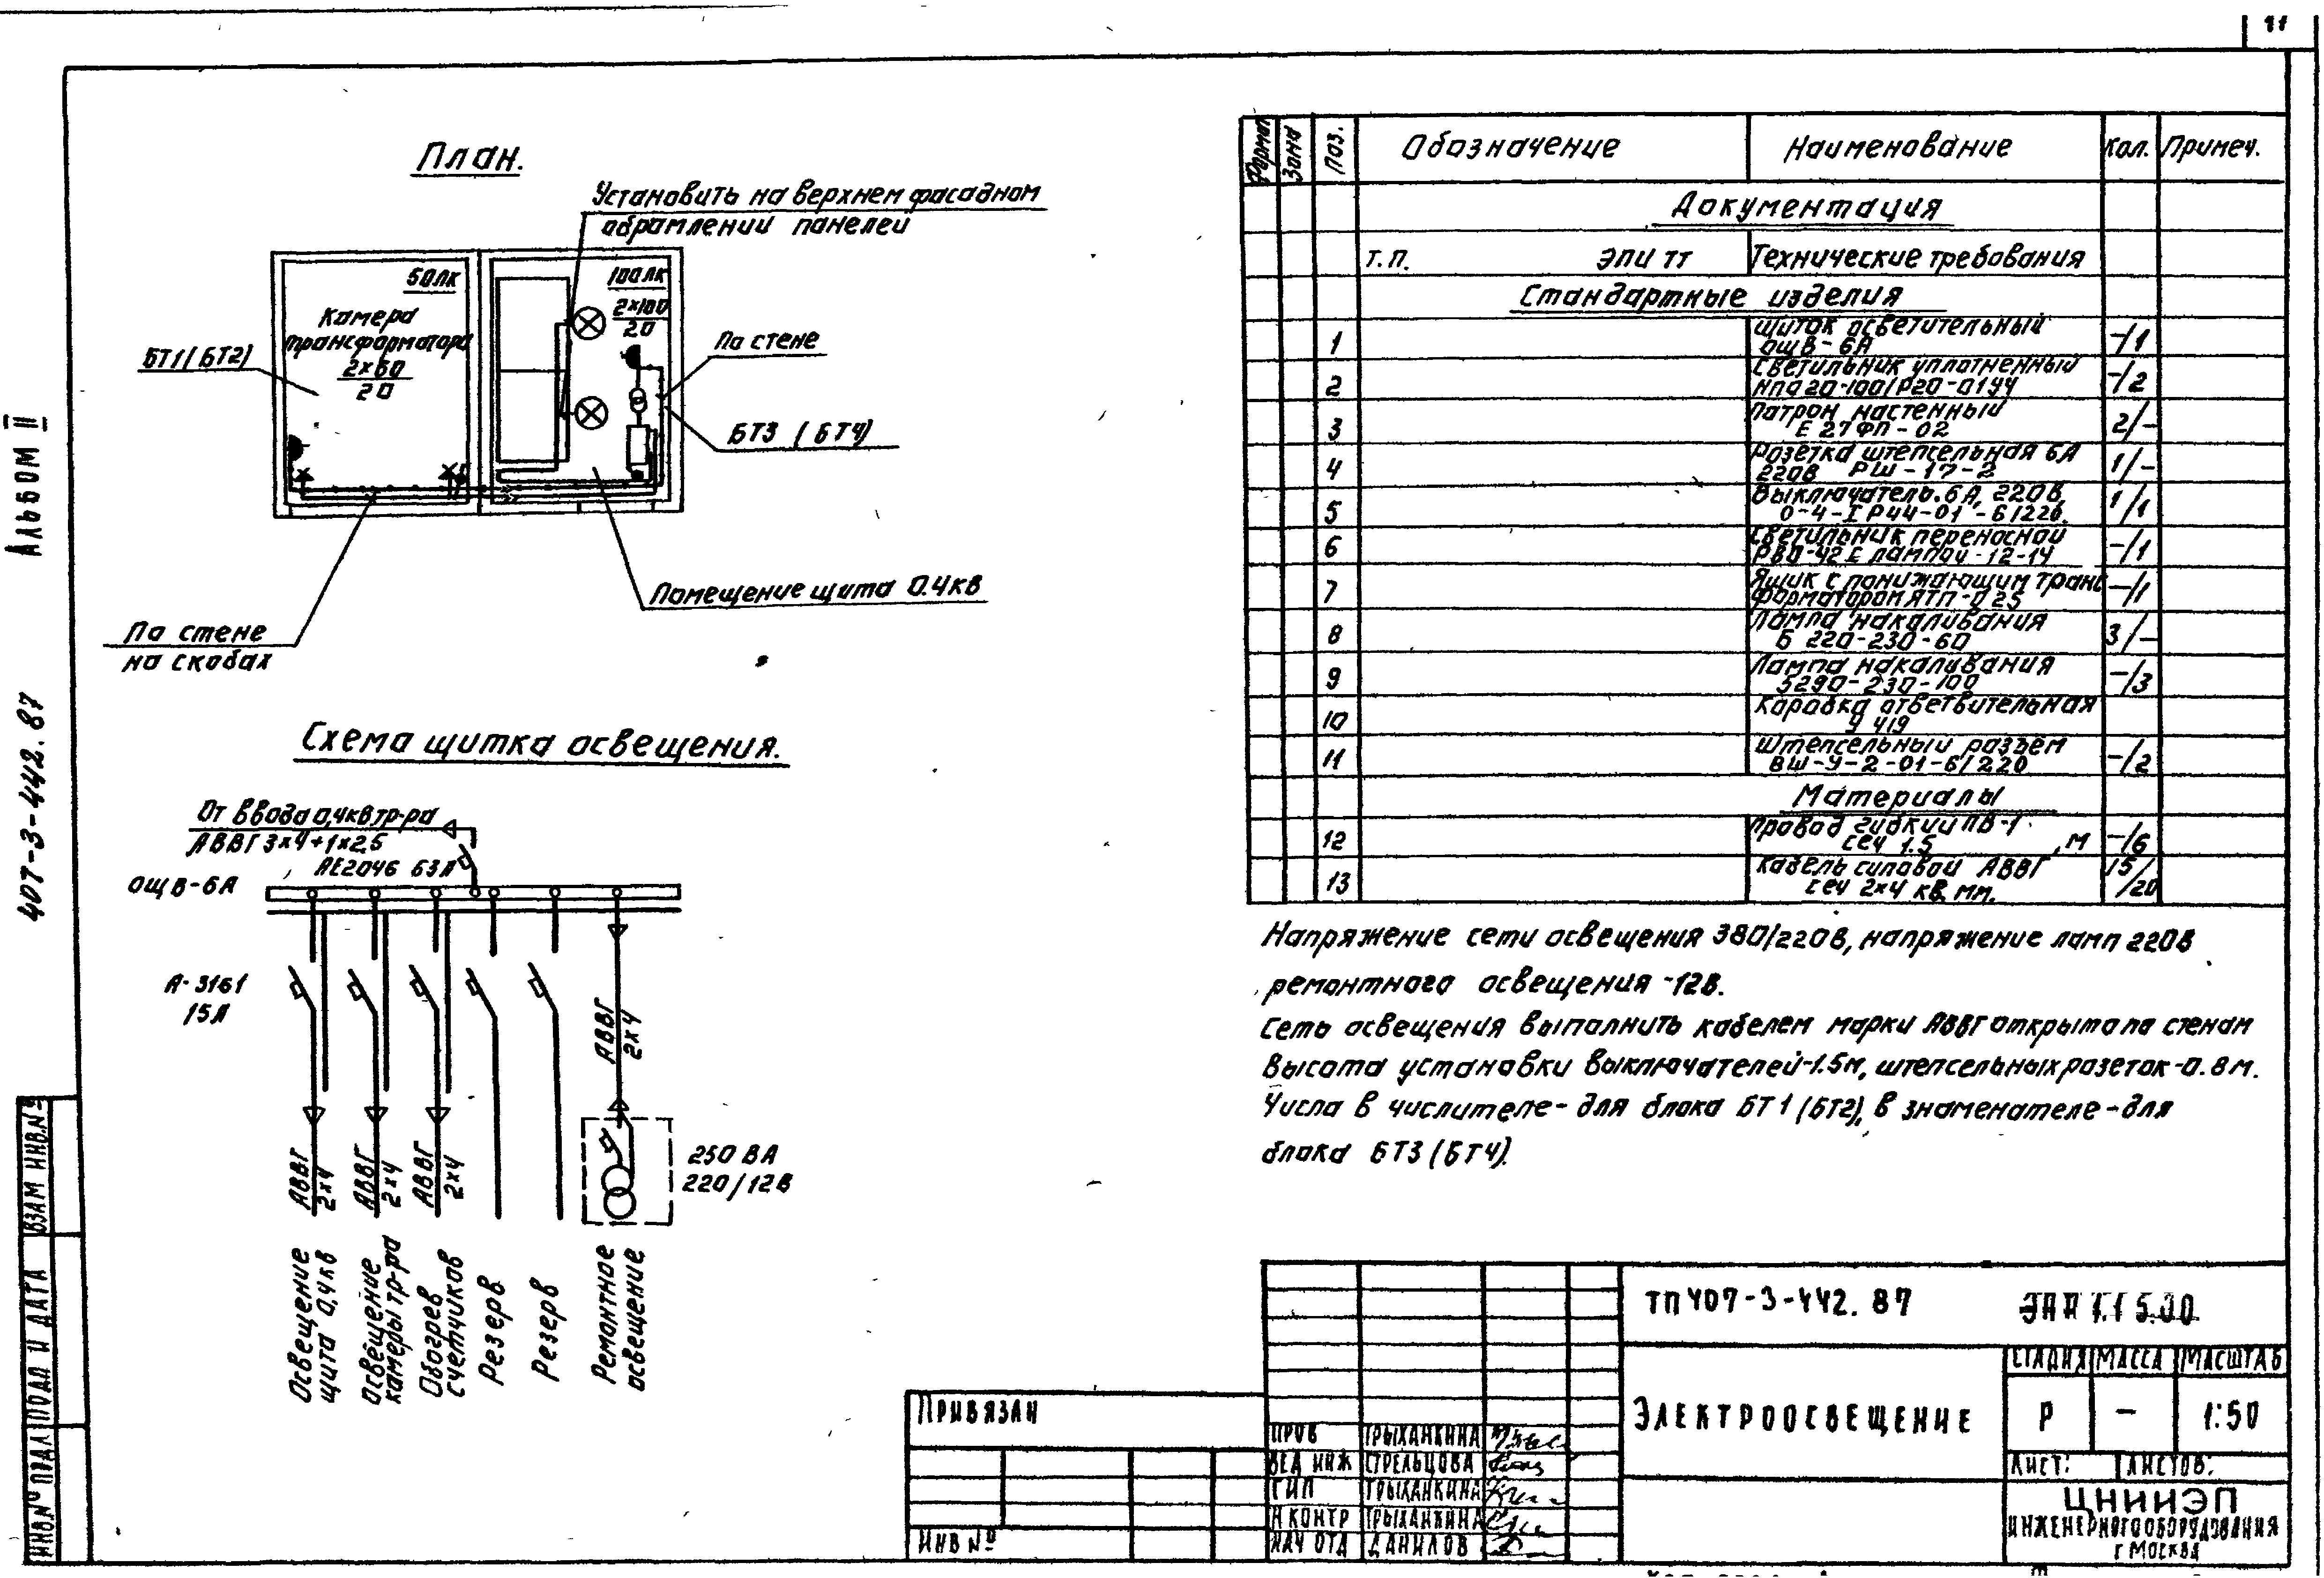 11
Альбом II
407-3-442.87
План.
Установить на верхнем фасадном
обрамлении панелей
50лк
Камера
трансформатора
2×60
20
100лк
2×100
20
БТ1(БТ2)
По стене
БТ3 (БТ4)
Помещение щита 0.4кв
По стене
на скобах
Схема щитка освещения.
От ввода 0,4кв тр-ра
АВВГ 3×4+1×2,5
АЕ2046 63А
ОЩВ-6А
А-3161
15А
АВВГ 2×4
АВВГ 2×4
АВВГ 2×4
АВВГ 2×4
250 ВА
220/12В
Освещение щита 0,4кв
Освещение камеры тр-ра
Обогрев счетчиков
Резерв
Резерв
Ремонтное освещение
Формат Зона Поз. Обозначение Наименование Кол. Примеч.
Документация
Т.П. ЭПИ ТТ Технические требования
Стандартные изделия
1 Щиток осветительный
ОЩВ-6А -/1
2 Светильник уплотненный
НПО20-100/Р20-01У4 -/2
3 Патрон настенный
Е 27ФП-02 2/-
4 Розетка штепсельная 6А
220В РШ-17-2 1/-
5 Выключатель. 6А, 220В,
0-4-IР44-01-6/220. 1/1
6 Светильник переносной
РВО-42 с лампой-12-14 -/1
7 Ящик с понижающим транс
форматором ЯТП-0.25 -/1
8 Лампа накаливания
Б 220-230-60 3/-
9 Лампа накаливания
Б290-230-100 -/3
10 Коробка ответвительная
У 419
11 Штепсельный разъем
ВШ-У-2-01-6/220 -/2
Материалы
12 Провод гибкий ПВ-1
сеч 1.5 , м -/6
13 Кабель силовой АВВГ
сеч 2×4 кв.мм. 15/20
Напряжение сети освещения 380/220В, напряжение ламп 220В
ремонтного освещения -12В.
Сеть освещения выполнить кабелем марки АВВГ открыто по стенам
Высота установки выключателей-1.5м, штепсельных розеток-0.8м.
Числа в числителе-для блока БТ1(БТ2), в знаменателе-для
блока БТ3(БТ4).
ВЗАМ ИНВ.№
ПОДП И ДАТА
ИНВ.№ ПОДЛ
Привязан
Инв №
ТП 407-3-442.87
Электроосвещение
СТАДИЯ МАССА МАСШТАБ
Р - 1:50
ЛИСТ: ЛИСТОВ:
ПРОВ ТРЫХАНКИНА
ВЕД ИНЖ СТРЕЛЬЦОВА
ГИП ТРЫХАНКИНА
Н КОНТР ТРЫХАНКИНА
НАЧ ОТД ДАНИЛОВ
ЦНИИЭП
ИНЖЕНЕРНОГО ОБОРУДОВАНИЯ
Г МОСКВА